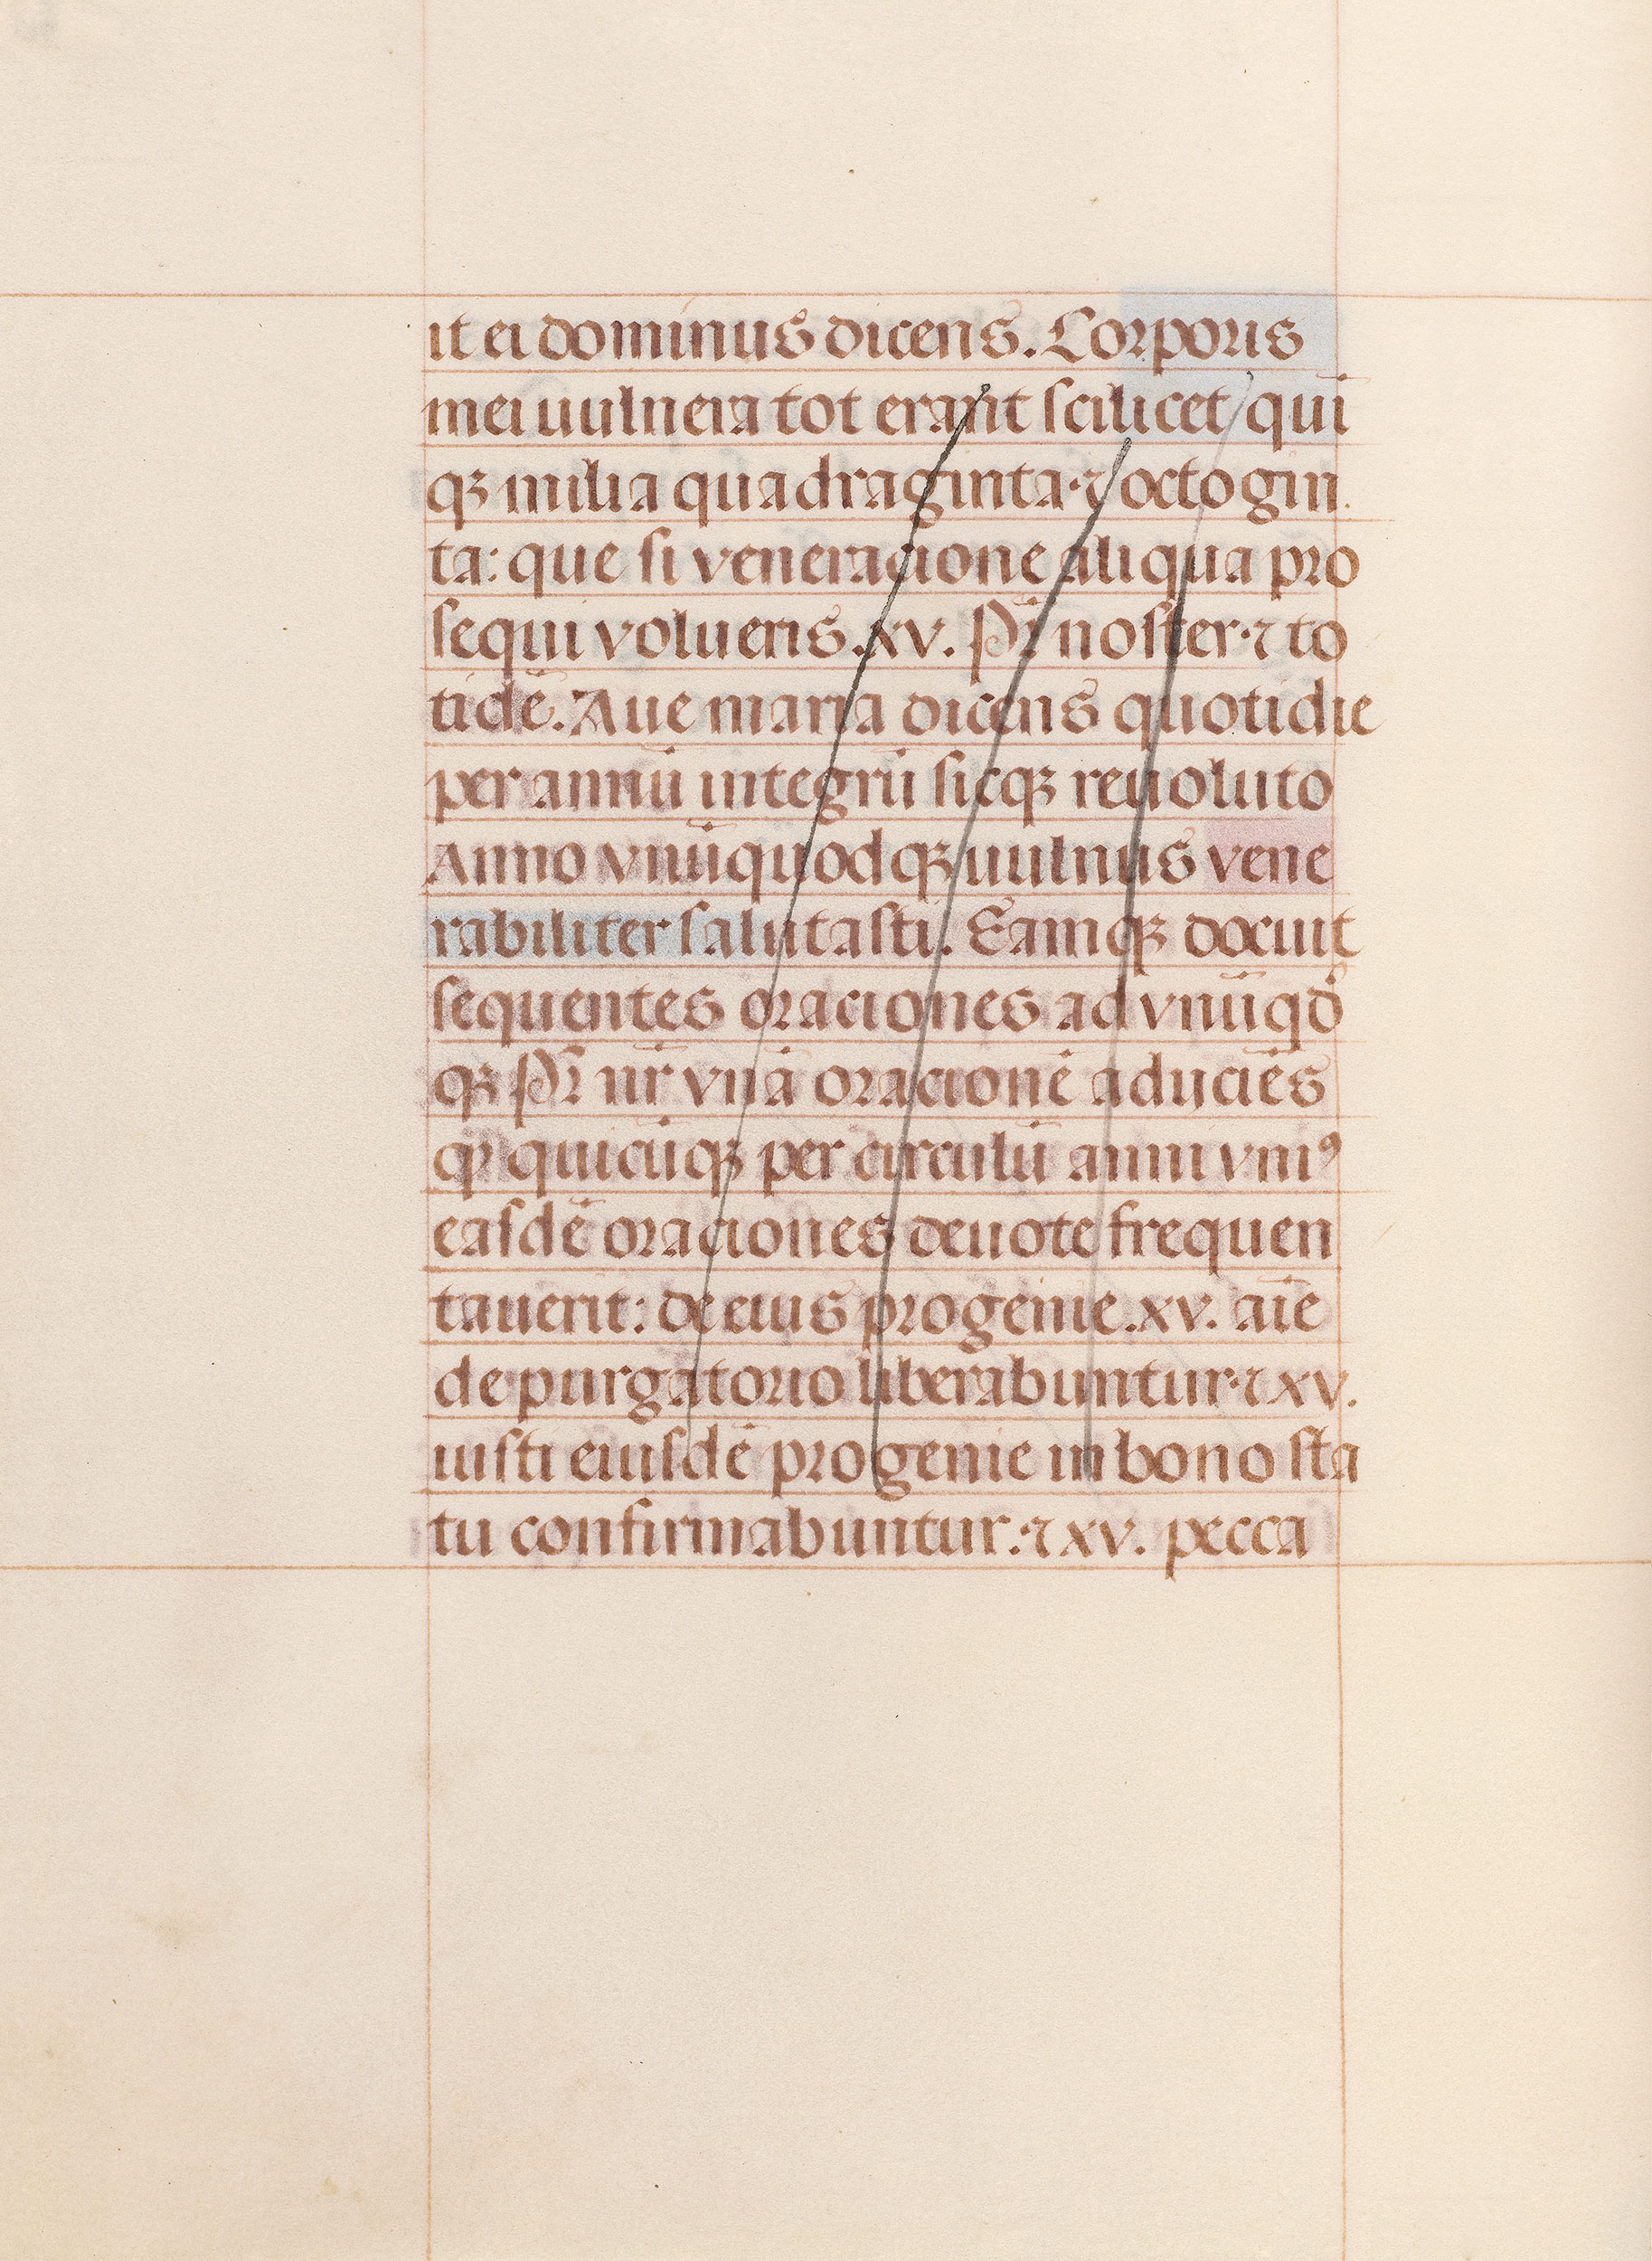 it ei dominus dicens. Corporis
mei uulnera tot erant scilicet quī
qꝫ milia quadraginta·⁊ octogin
ta: que si veneracione aliqua pro
sequi volueris .xv. Pr̄ noster·⁊ to
tidē. Aue maria dicens quotidie
per annū integrū sicqꝫ reuoluto
Anno vnūquodqꝫ uulnus vene
rabiliter salutasti. Eamqꝫ docuit
sequentes oraciones ad vnūqd̕
qꝫ Pr̄ nr̄ vnā oracionē aduciēs
qꝫ quicūqꝫ per circulū anni vniꝰ
easdē oraciones deuote frequen
tauerit: de eius progenie .xv. aīe
de purgatorio liberabuntur·⁊ xv.
iusti eiusdē progenie in bono sta
tu confirmabuntur.·⁊ xv. pecca